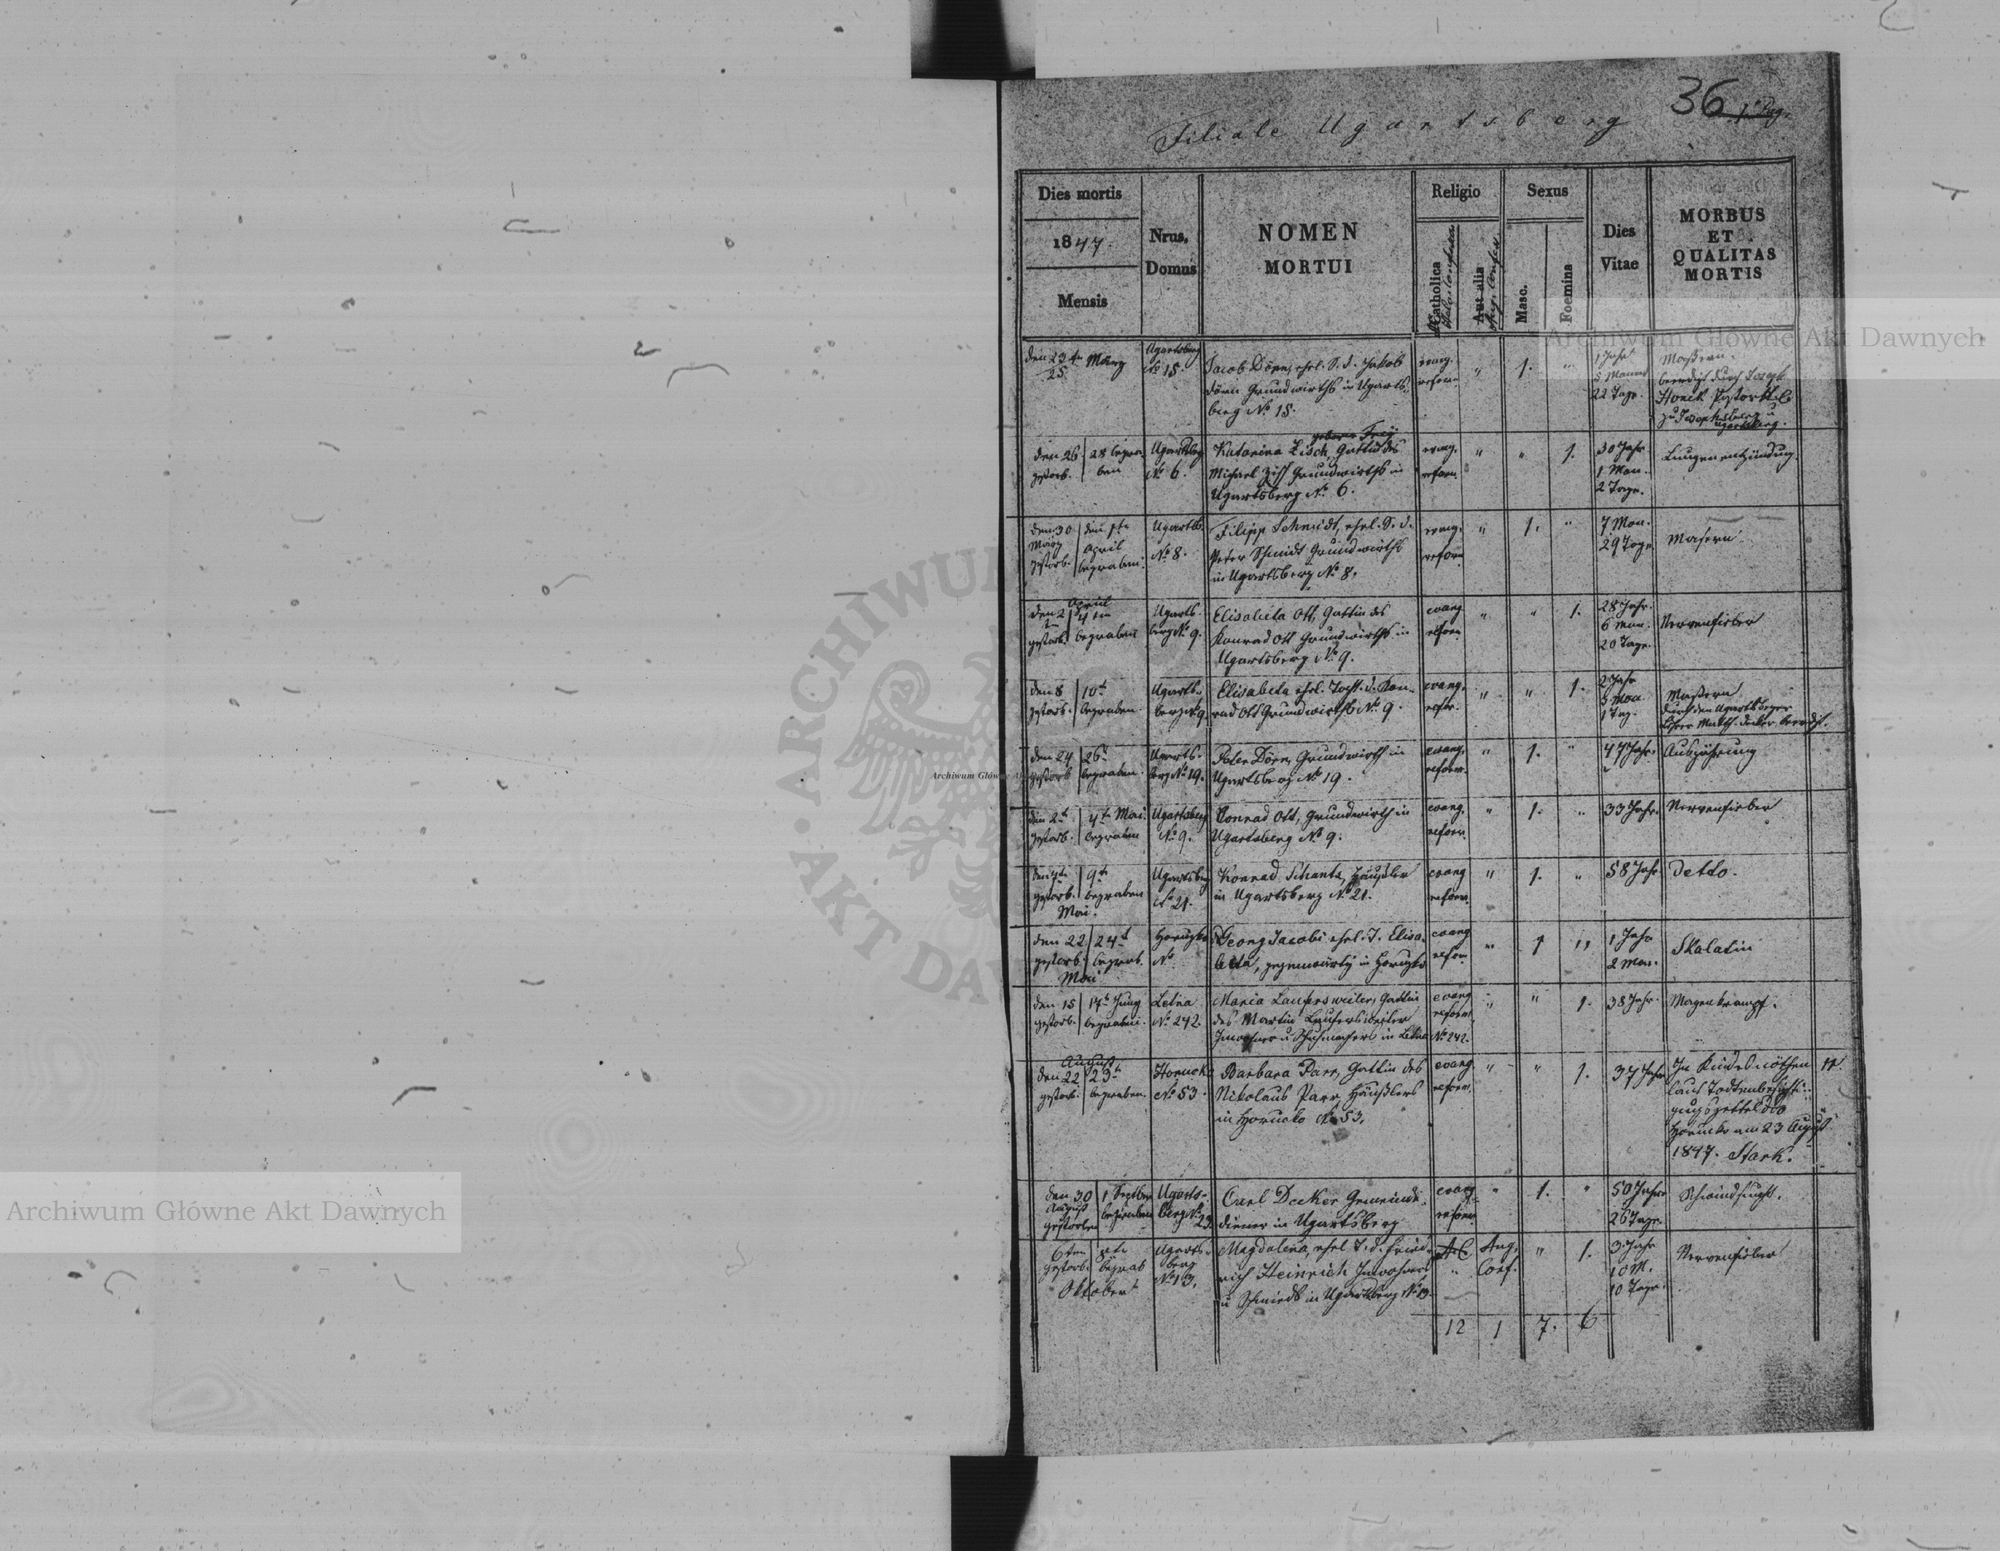 36
Filiale Ugartsberg
Dies mortis
1847.
Mensis
Nrus.
Domus
NOMEN
MORTUI
Religio
Catholica
Aut alia
Sexus
Masc.
Foemina
Dies
Vitae
MORBUS
ET
QUALITAS
MORTIS
den 23 März
25
Ugartsberg
No 15.
Jacob Dörn, ehel. S. d. Jakob
Dörn Grundwirths in Ugarts-
berg No 15.
evang.
reform.
"
1.
"
1 Jahr
22 Tage.
Masern.
beerdigt durch Joseph
zu Josephsberg u
Ugartsberg.
den 26
gestorb.
28 begra-
ben
Ugartsberg
No 6.
geborne Frey
Katarina Zisch, Gattin des
Michael Zisch Grundwirths in
Ugartsberg No 6.
evang.
reform.
"
"
1.
30 Jahr
1 Mon.
2 Tage.
Lungenentzündung.
den 30
März
gestorb.
den 1te
April
begraben.
Ugartsb.
No 8.
Filipp Schmidt, ehel. S. d.
Peter Schmidt Grundwirths
in Ugartsberg No 8.
evang.
reform.
"
1.
"
7 Mon.
29 Tage
Masern
April
den 2
gestorb.
4 ten
begraben
Ugarts
berg No 9.
Elisabeta Ott, Gattin des
Konrad Ott Grundwirths in
Ugartsberg No 9.
evang
reform.
"
"
1.
28 Jahr.
6 Mon.
20 Tage.
Nervenfieber
den 8
gestorb.
10t
begraben.
Ugarts-
berg No 9.
Elisabeta ehel. Tocht. d. Kon-
rad Ott Grundwirths No 9.
evang.
refor.
"
"
1.
2 Jahr
3 Mon.
1 Tag.
Masern
durch den Ugartsberger
Lehrer Math. Decker beerdigt.
den 24
gestorb
26t
begraben.
Ugarts-
berg No 19.
Peter Dörn, Grundwirth in
Ugartsberg No 19.
evang.
reform.
"
1.
"
47 Jahr.
Auszehrung
den 2t
gestorb.
4te Mai
begraben
Ugartsberg
No 9.
Conrad Ott, Grundwirth in
Ugartsberg No 9.
evang.
reform.
"
1.
"
33 Jahr.
Nervenfieber
gestorb.
Mai.
9te
begraben
Ugartsberg
No 21.
Konrad Schantz, Häußler
in Ugartsberg No 21.
evang
reform.
"
1.
"
58 Jahr
Detto.
den 22
gestorb.
Mai
24t
begrab.
No
Georg Jacobi ehel. S. Elisa-
beta, gegenwärtig in
evang
refor.
"
1
"
1 Jahr
2 Mon.
Skalatin
den 15
gestorb.
17t Juny
begraben.
Letna
No 242.
Maria Laufersweiler, Gattin
des Martin Laufersweiler
Inwohner u Schuhmachers in Letna
evang
reform.
No 242.
"
"
1.
38 Jahr.
Magenkrampf.
August
den 22
gestorb.
23t
begraben.
Horucko
No 53.
Barbara Parr, Gattin des
Nikolaus Parr, Häußlers
in Horucko No 53.
evang
reform.
"
"
1.
37 Jahr
In Kindesnöthen
laut Todtenbeschau-
Horucko am 23 August
1847. Stark.
den 30
August
gestorben
1 Septber
begraben
Ugarts-
berg No
23.
Carl Decker Gemeinde-
diener in Ugartsberg
evang
reform.
"
1.
"
50 Jahr
26 Tage.
Schwindsucht.
6ten
gestorb.
8te
begrab
Oktober
Ugarts-
berg
No 13.
Magdalena, ehel T. d. Fried-
rich Heinrich Inwohners
u Schmieds in Ugartsberg No 13.
Aug.
Conf.
"
1.
3 Jahr
10 M.
10 Tage.
Nervenfieber
12
1
7.
6
Archiwum Główne Akt Dawnych
Archiwum Główne Akt Dawnych
ARCHIWUM
AKT DAW